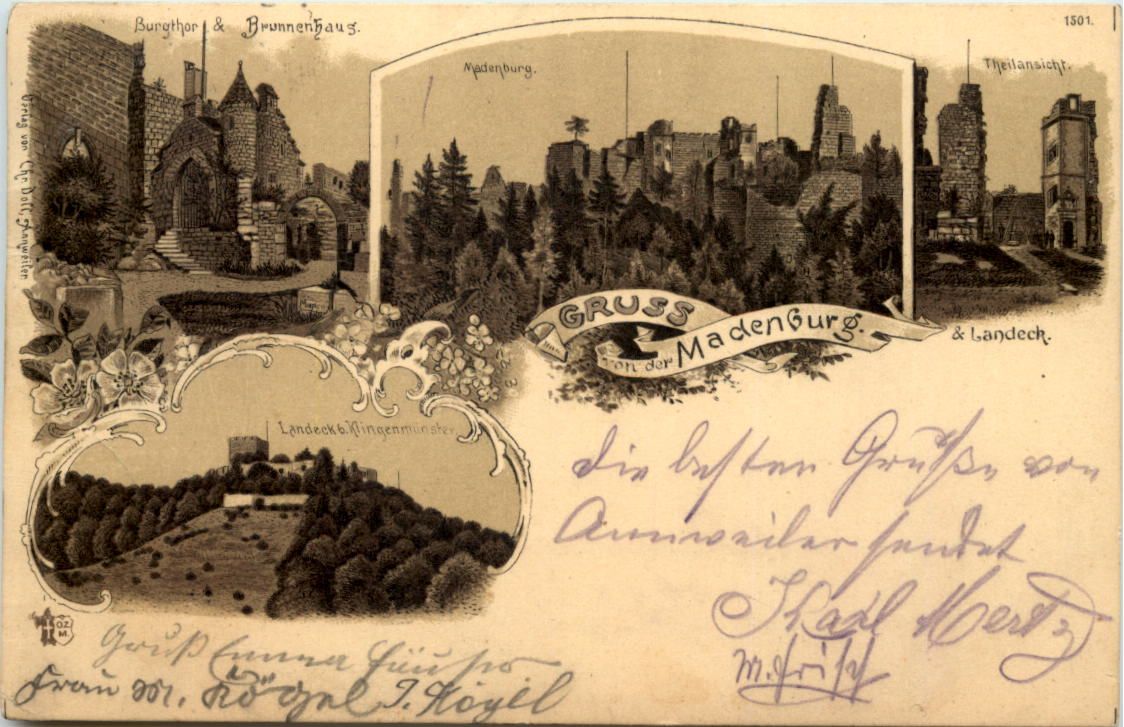 Burgthor & Brunnenhaus.
1501.
Madenburg.
Theilansicht.
Verlag von Chr. Doll, Annweiler
GRUSS
von der Madenburg.
& Landeck.
Landeck b. Klingenmünster.
Die besten Grüße von
Annweiler sendet
Karl Mertz
M. Frisch
OZ
M.
Gruß Emma
Frau M. Kögel J. Kögel